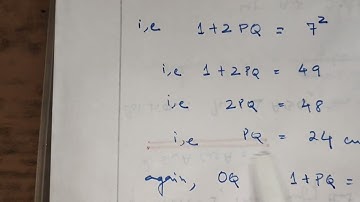 i,e 1+2 PQ = 7²
i,e 1+2PQ = 49
i,e 2PQ = 48
i,e PQ = 24 cm
again, OQ 1+PQ =